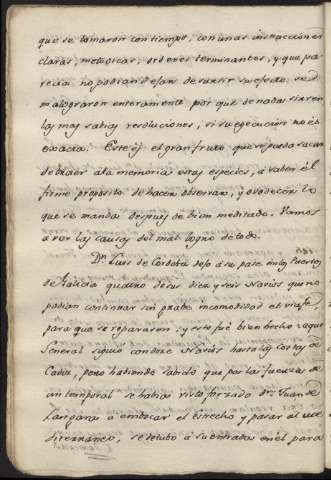 que se tomaron con tiempo, con unas instrucciones
claras, metodicas, ordenes terminantes, y que pa-
recia no podian dejar de surtir su efecto, se
malograron enteramente por que de nada sirven
las mas sabias resoluciones, si su egecucion no es
exacta. Este es el gran fruto que se pueda sacar
de traer a la memoria estas especies, a saber el
firme proposito de hacer observar, y obedecer lo
que se manda despues de bien meditado. Vamos
a ver las causas del mal logro de todo.
Dn. Luis de Cordoba dejó a su paso en los Puertos
de Galicia quatro de sus diez y seis Navios que no
podian continuar sin grabe incomodidad el viaje,
para que se repararsen; y esto fué bien hecho: aquel
General siguio con doze Navios hasta las Costas de
Cadiz, pero habiendo sabido que por la fuerza de
un temporal se habia visto forzado Dn. Juan de
Langara a embocar el Estrecho, y pasar al
Mediterraneo, se detubo a su entrada en el para